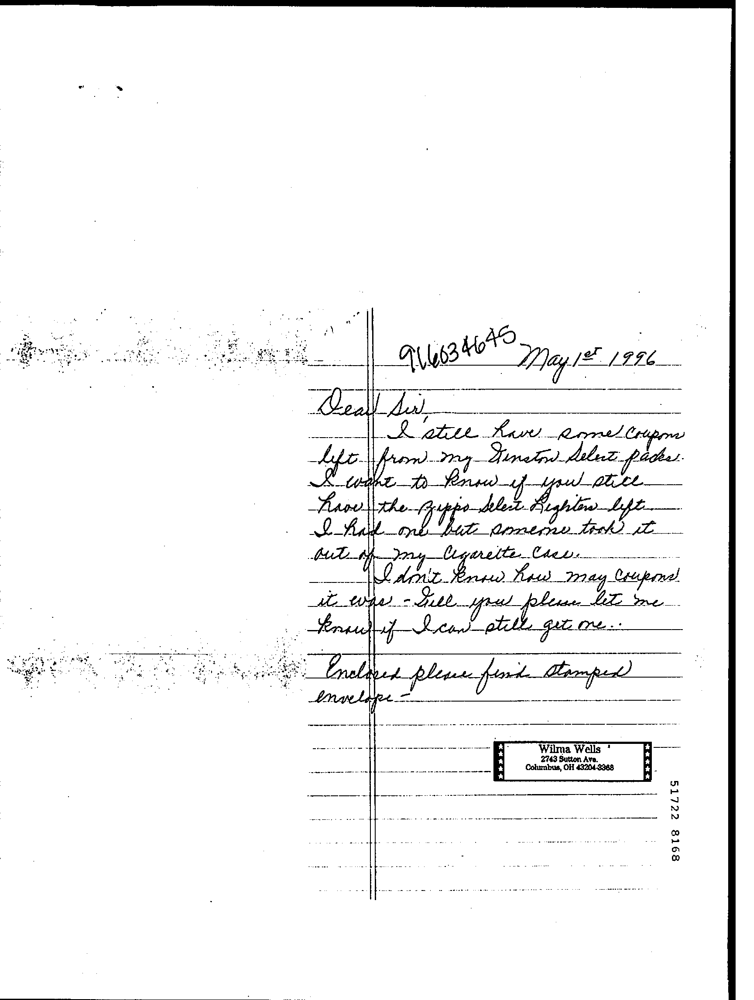 916034645
May 1st 1996
Dear Sir,
I still have some coupons
left from my Winston Select packs.
I want to know if you still
have the Zippo Select Lighters left.
I had one but someone took it
out of my Cigarette Case.
I don't know how may coupons
it was - Will you please let me
know if I can still get one..
Enclosed please find stamped
envelope -
Wilma Wells
2743 Sutton Ave.
Columbus, OH 43204-3368
51722 8168